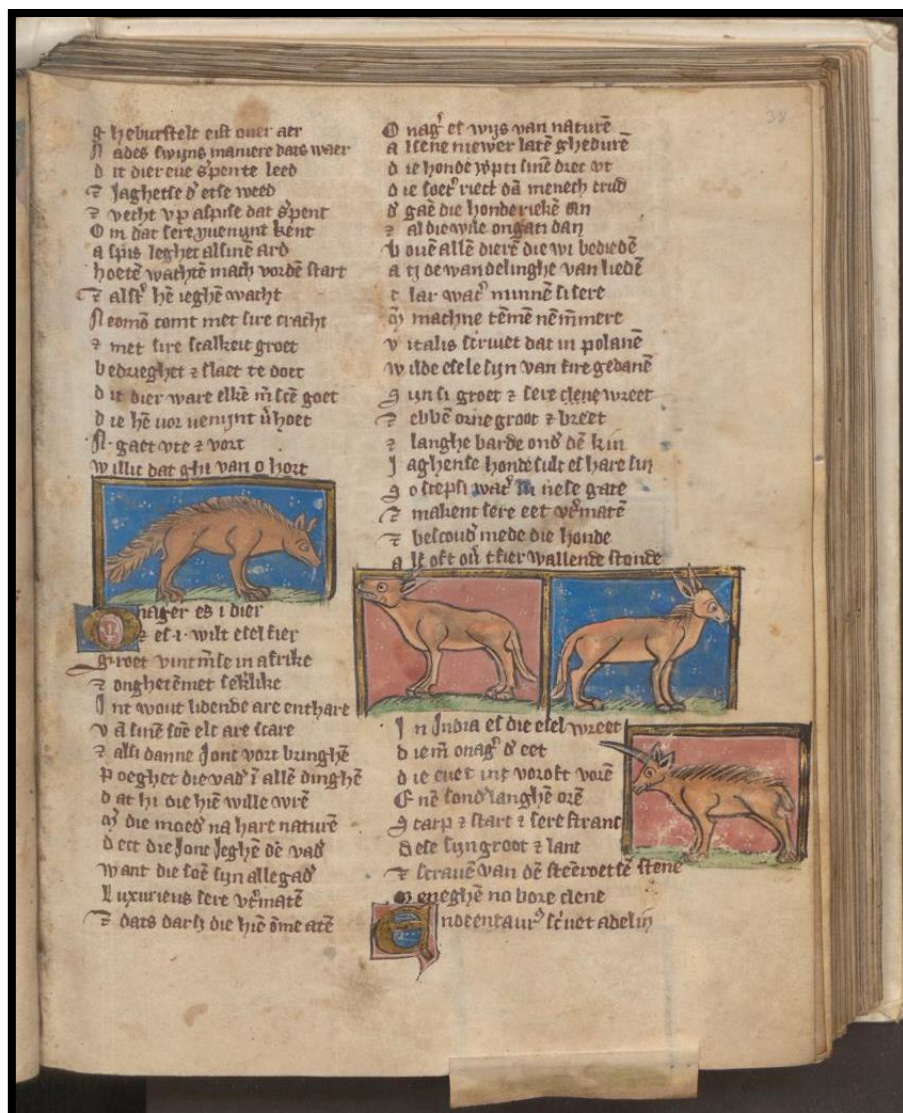 gheburstelt eist ouer aer
N ades swijns maniere dats waer
d it dier eñ sˀpente leed
⁊ Jaghetse dˀ etse weed
⁊ vecht vp aspise dat sˀpent
O m dat sere yuenijnt kent
a spis leghet al sinē ard
hoetē wachtē mach vordē start
⁊ alstˀ hē ieghē wacht
N eomō comt met sire cracht
⁊ met sire scalkeit groet
b edrieghet ⁊ slaet te doet
d it dier ware elkē m̄scē goet
d ie hē uor uenijnt v̄hoet
N. gaet vte ⁊ vort
w illic dat ghi van o hort
O nager es i dier
⁊ es .i. wilt esel fier
g roet vintm̄se in afrike
⁊ onghetēmet sekłike
J nt wout lidende are enthare
v ā sinē soē elc are scare
⁊ alsi danne Jonc vort bringhē
P oeghet die vadˀ ī allē dinghē
d at hi die hiē wille wrē
m̄ die moedˀ na hare naturē
d ect die Jonc Jeghē dē vadˀ
w ant die soē sijn allegadˀ
L uxurieus sere vˀmatē
⁊ dats darb die hiē ōme atē
O nagˀ es wijs van naturē
a lsene niewer latē ghedurē
d ie honde wˀpti sinē drec vt
d ie soetˀ riect dā menech crud
dˀ gaē die honde riekē an
⁊ al die wile ongati dan
b ouē allē dierē die wi bediedē
a ti de wandelinghe van liedē
c lar watˀ minnē si sere
m̄ machne tēmē nēm̄mere
v italis scriuet dat in polanē
w ilde esele sijn van sire gedanē
S ijn si groet ⁊ sere clene wreet
⁊ ebbē orne groot ⁊ breet
⁊ langhe barde ondˀ dē kin
J aghense honde sulc es hare sin
S o scepsi watˀ in nese gate
⁊ makent sere eet vˀmatē
⁊ bescoudˀ mede die honde
a ls oft ou̅ tfier wallende stonde
J n Jndia es die esel wreet
d iem̄ onagˀ dˀ eet
d ie euet int voroft vorē
E nē sondˀ langhē orē
S carp ⁊ start ⁊ sere stranc
D ese sijn groet ⁊ lanc
⁊ scrauē van dē steēroetsē stene
M eneghē no bore clene
E ndcentaurˀ scˀuet adelin
38